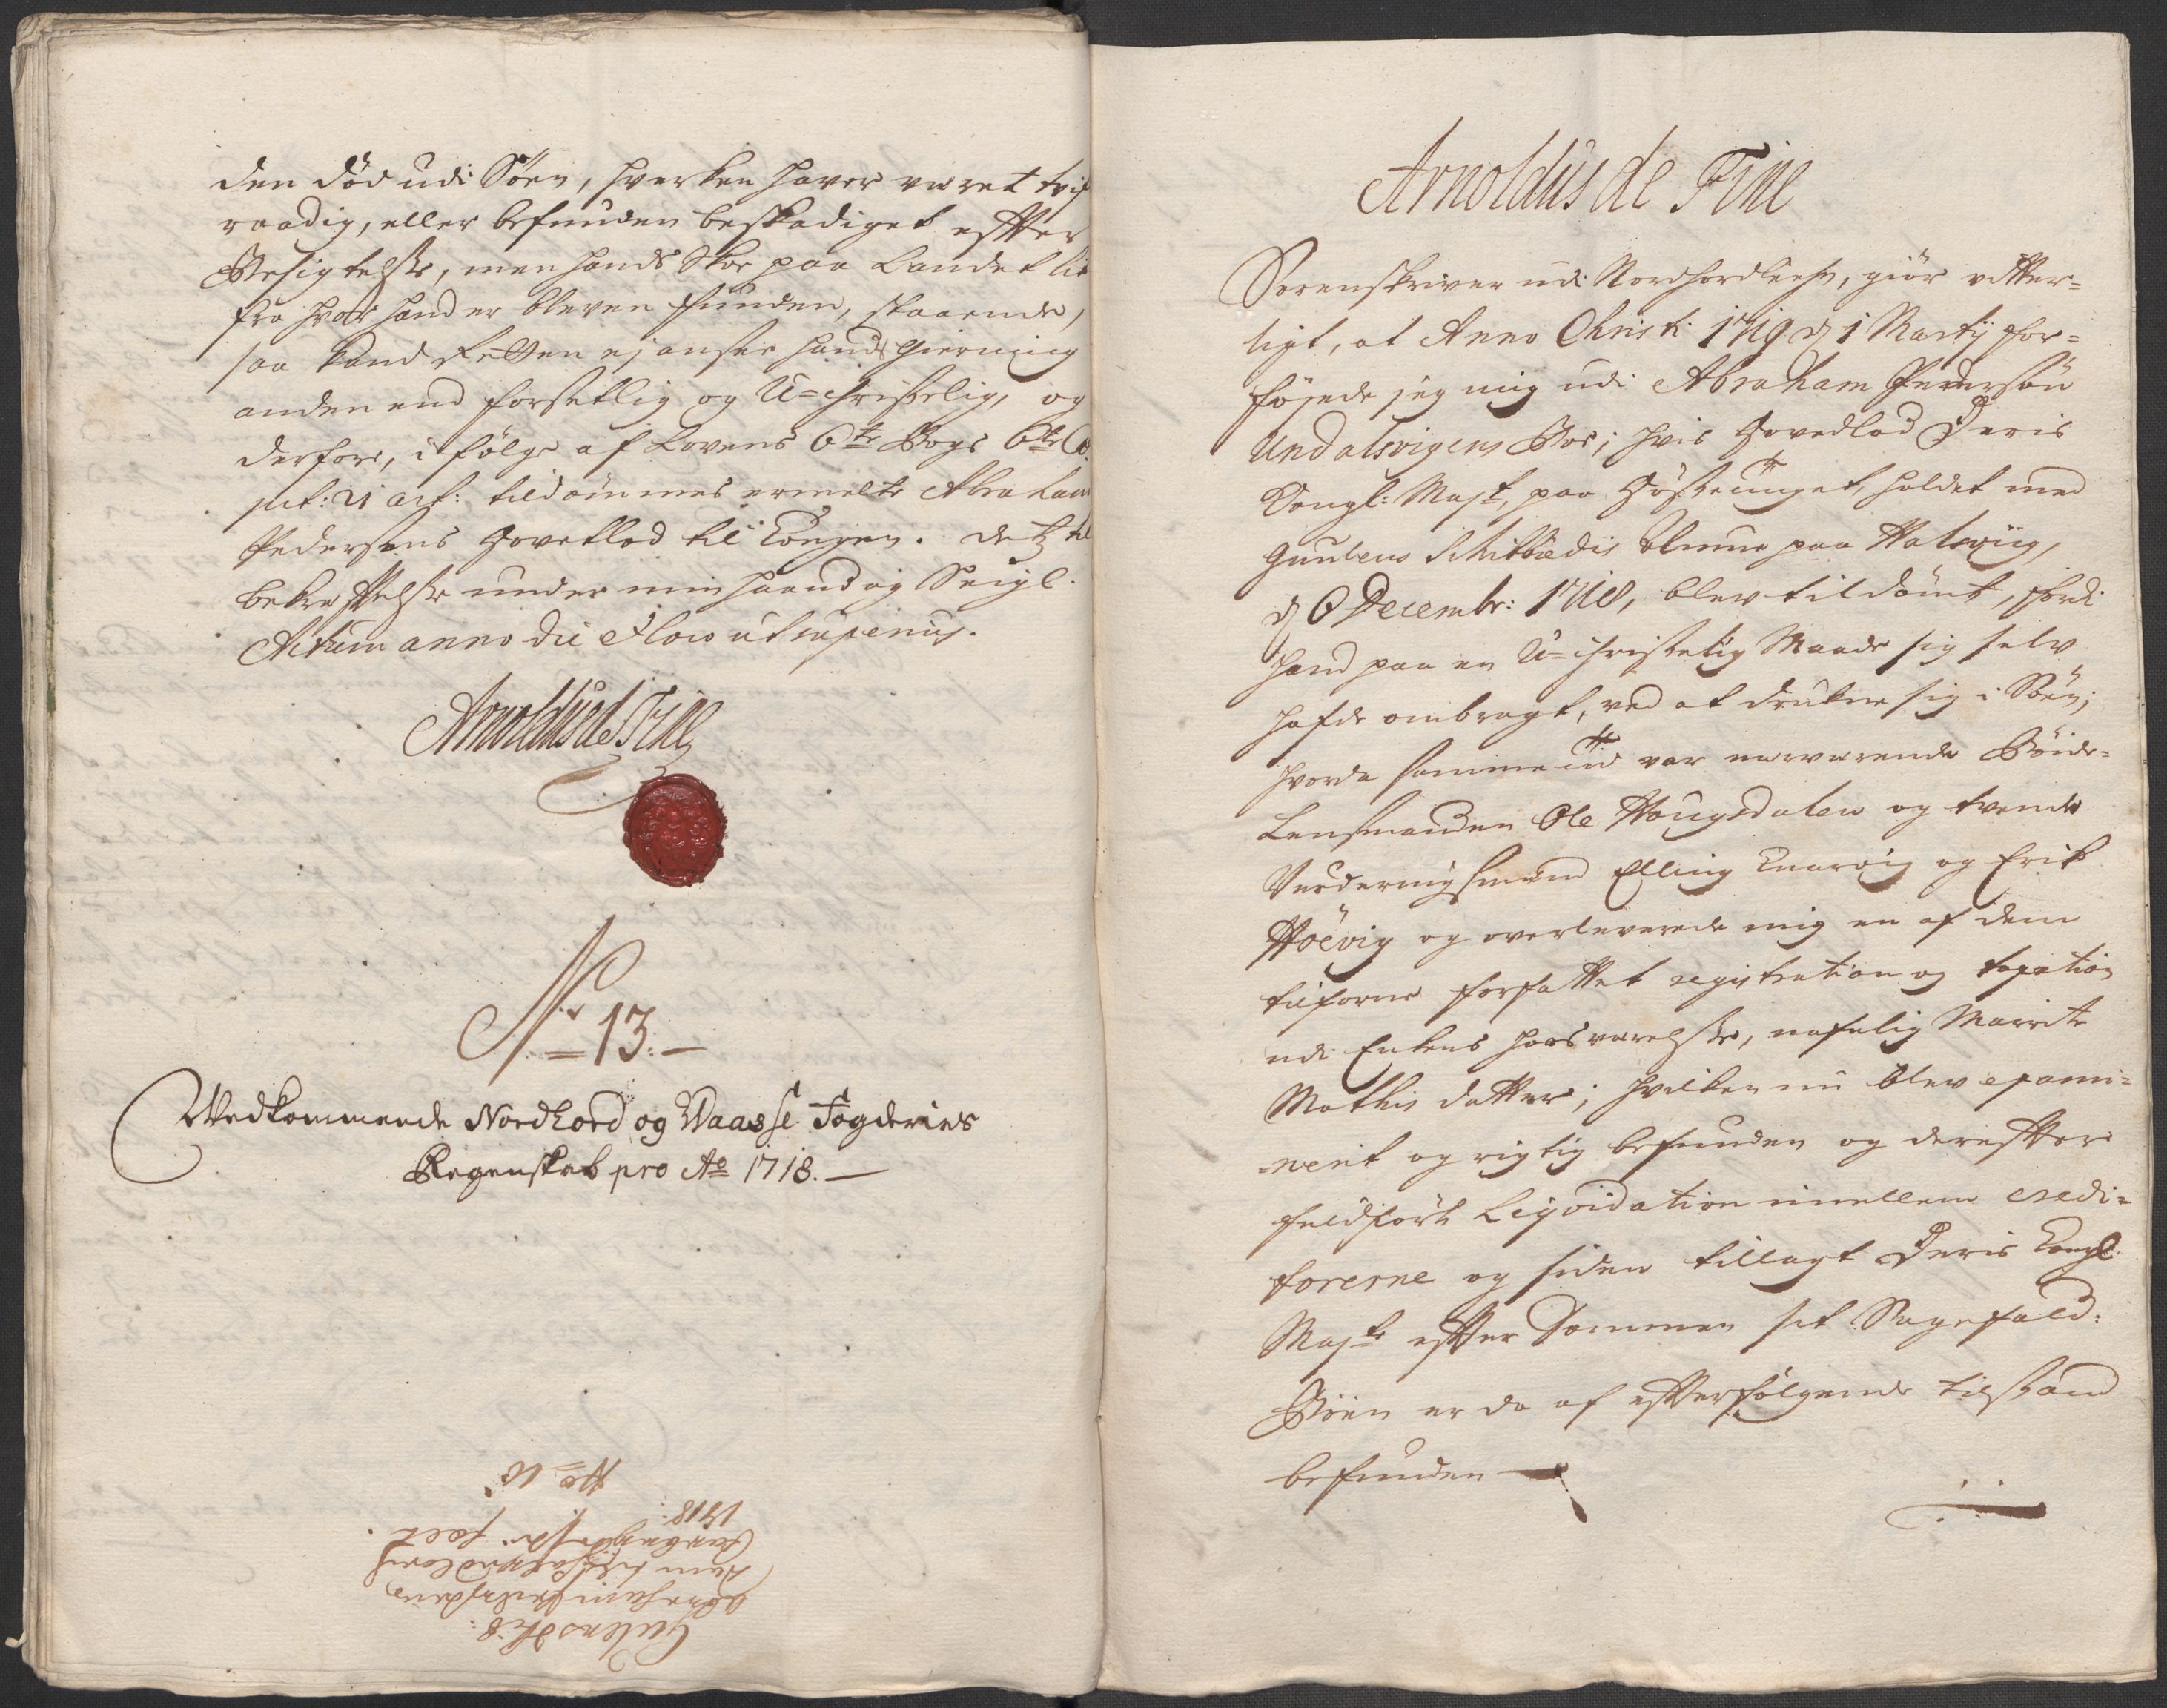 den død udi Søen, hverken haver været
raadig, eller befunden beskadiget effter
Besigtelsse, men hands Skoe paa Landet
fra hvor hand er bleven funden, staaende,
saa kand Retten ej ansee hands Gierning
anden end forsetlig og U-christelig, og
derfore, i følge af Lovens 6te Bogs 6te C.
sict: 21 art: tildømmes ermelte Abraham
Pedersens Hovetlod til Kongen. Detz til
bekreftelsse under min haand og Seigl.
Actum anno die Loco ut superius.
Arnoldus de Fine
No 13.
Vedkommende Nordhord og Waasse Fogderies
Regenskab pro Ao 1718.
Gulens Skib:
Abraham Pedersens
1718:
No 10
Arnoldus de Fine
Sorenskriver udi Nordhordlehn, giør vitter=
ligt, at Anno Christi 1719 d 1 Martij for=
føyede jeg mig udi Abraham Pedersøn
Undalsvigens Boe; hvis Hovedlod Deris
Kongl: Mayt, paa Høstetinget, holdet med
Guulens Schibbredis Almue paa Halsvig,
d 6 Decembr: 1718, blev tildømt, fordi
hand paa en U-christelig Maade sig selv
hafde ombragt, ved at drukne sig i Søen;
hvorda samme tid var nærværende Bøide=
Lensmanden Ole Hougsdalen og tvende
Vurderingsmænd Elling Knarvig og Erik
Høevig og overleverede mig en af dem
tilforne forfattet registration og taxation
udi Enkens hoesværelsse, nafnlig Marrite
Mathis datter; hvilken nu blev exami=
=nerit og rigtig befunden og dereffter
fuldført Liqvidation imellem credi=
torerne og siden tillagt Deris Kongl.
Mayt effter Dommen sit Sagefald:
Boen er da af effterfølgende tilstand
befunden